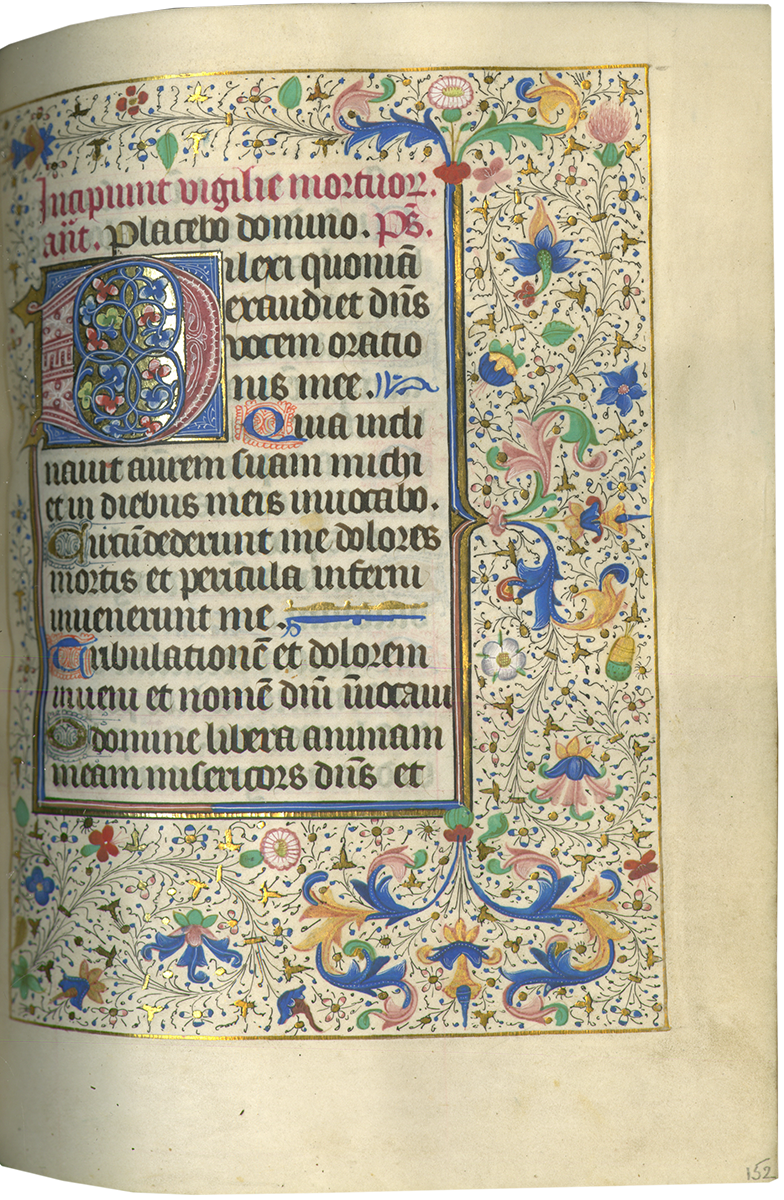 Incipiunt vigilie mortuorꝝ.
añt. Placebo domino. Ps̃.
Dilexi quoniã
exaudiet dñs
vocem oratio
nis mee.
Quia incli
nauit aurem suam michi
et in diebus meis inuocabo.
Circũdederunt me dolores
mortis et pericula inferni
inuenerunt me.
Tribulationẽ et dolorem
inueni et nomẽ dñi ĩuocaui
O domine libera animam
meam misericors dñs et
152